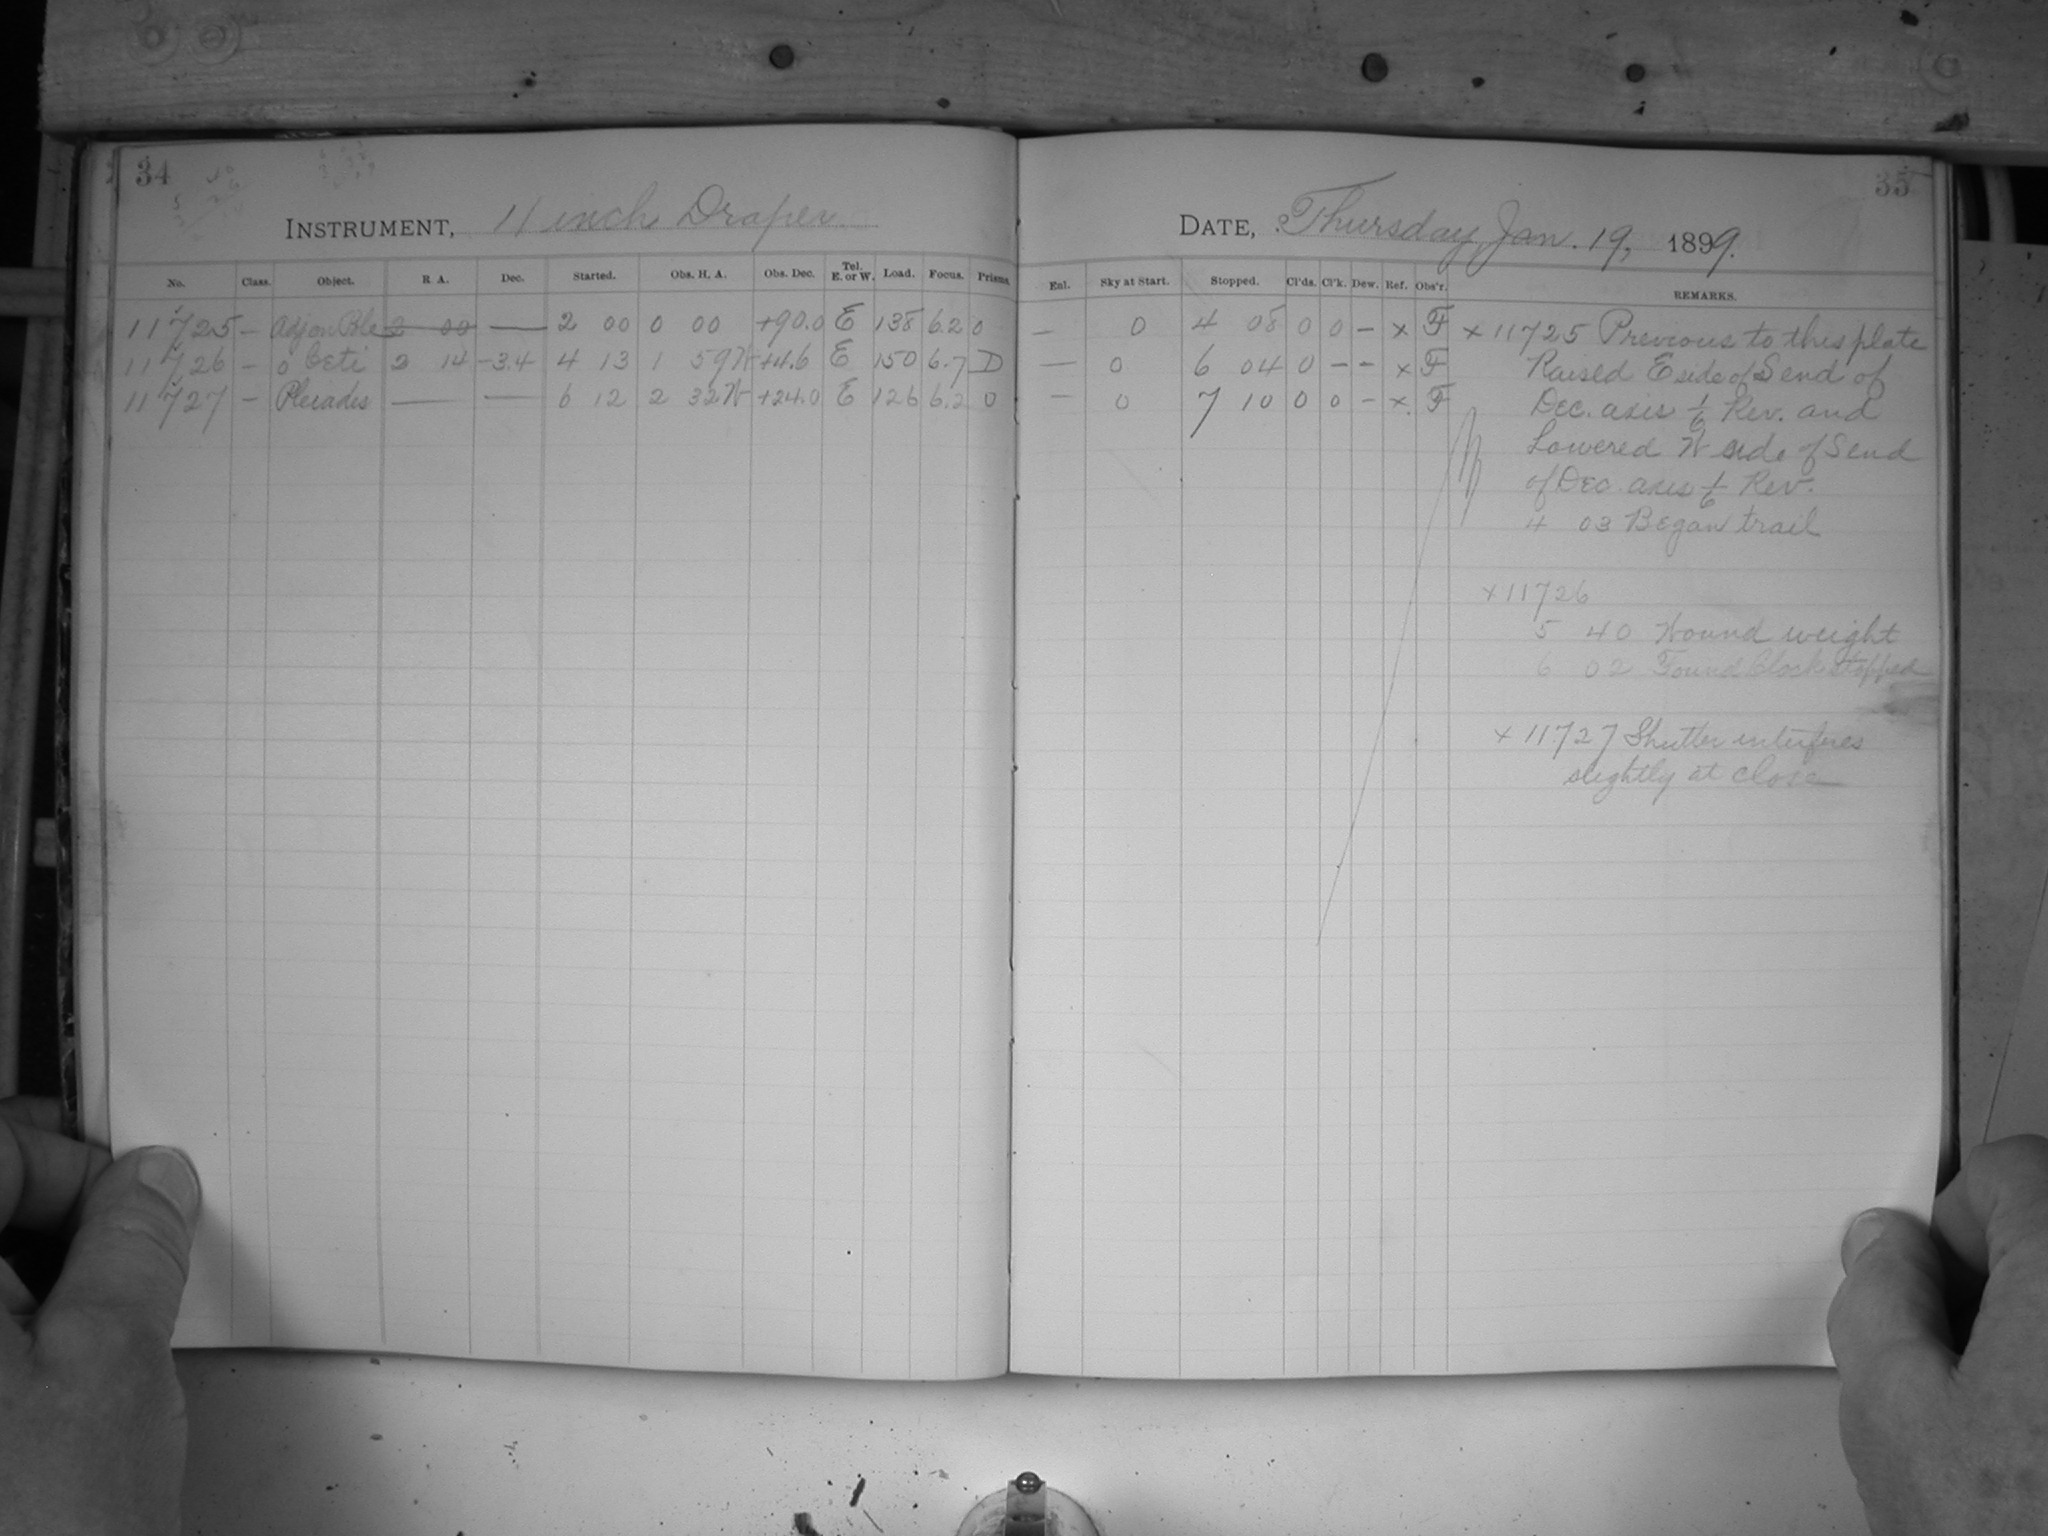 34
INSTRUMENT, 11 inch Draper
No. Class. Object. R. A. Dec. Started. Obs. H. A. Obs. Dec. Tel. E. or W. Load. Focus. Prisms.
11725 — Adj on Pole 2 00 — 2 00 0 00 +90.0 E 138 6.2 0
11726 — o Ceti 2 14 -3.4 4 13 1 59W +4.6 E 150 6.7 D
11727 — Pleiades — — 6 12 2 32W +24.0 E 126 6.2 0
35
DATE, Thursday Jan. 19, 1899.
Enl. Sky at Start. Stopped. Cl'ds. Cl'k. Dew. Ref. Obs'r. REMARKS.
— 0 4 08 0 0 – x F x 11725 Previous to this plate
— 0 6 04 0 – – x F Raised E side of S end of
— 0 7 10 0 0 – x F Dec. axis 1/6 Rev. and
Lowered W side of S end
of Dec. axis 1/6 Rev.
4 03 Began trail
x 11726
5 40 Wound weight
6 02 Found Clock stopped
x 11727 Shutter interferes
slightly at close